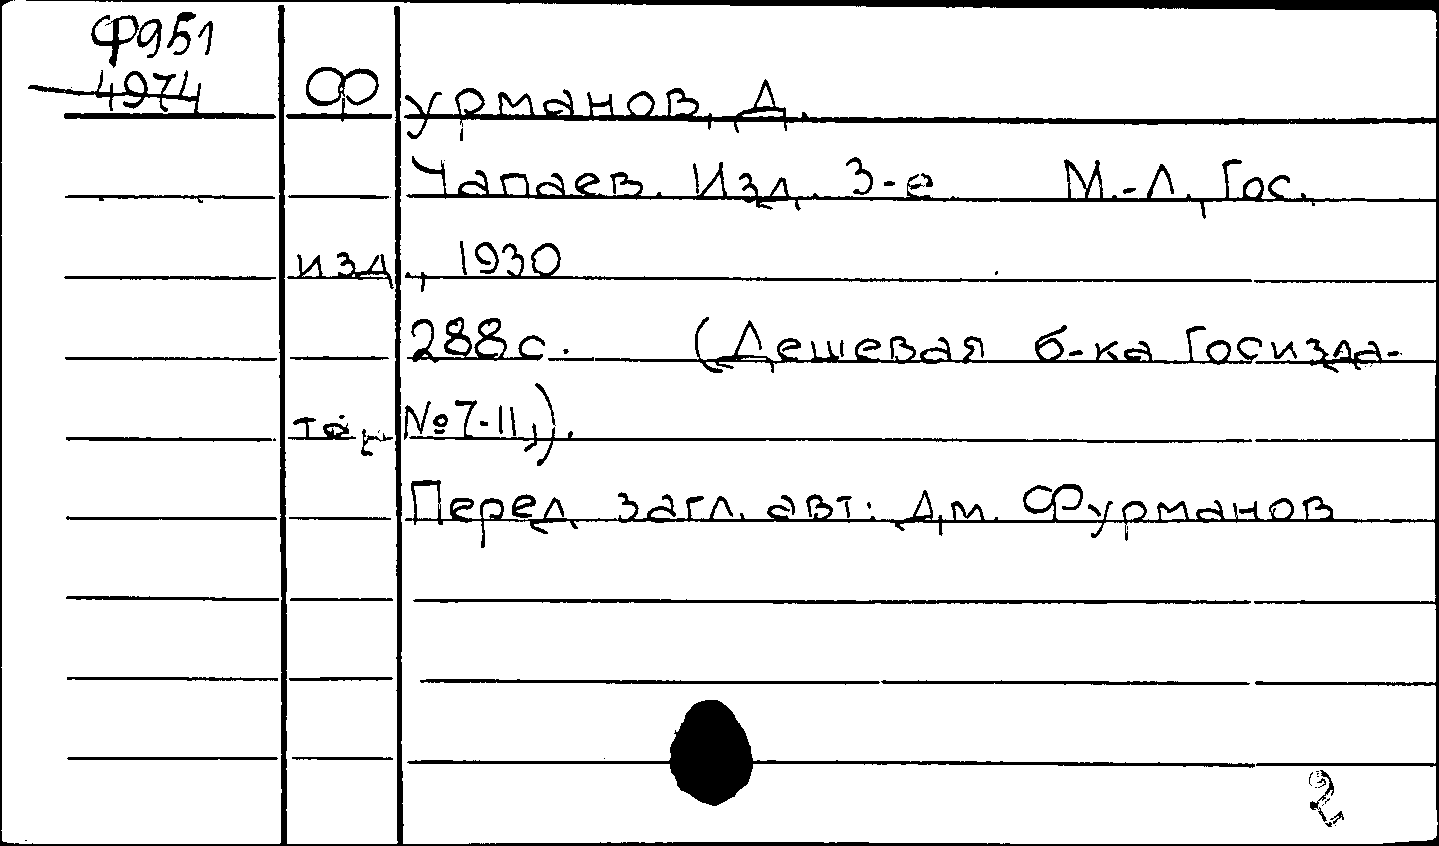 Ф951
4974
Фурманов, Д.
Чапаев. Изд. 3-е М.-Л., Гос.
изд., 1930
288с. (Дешевая б-ка Госизда-
та, №7-11,).
Перед загл. авт: Дм. Фурманов
2